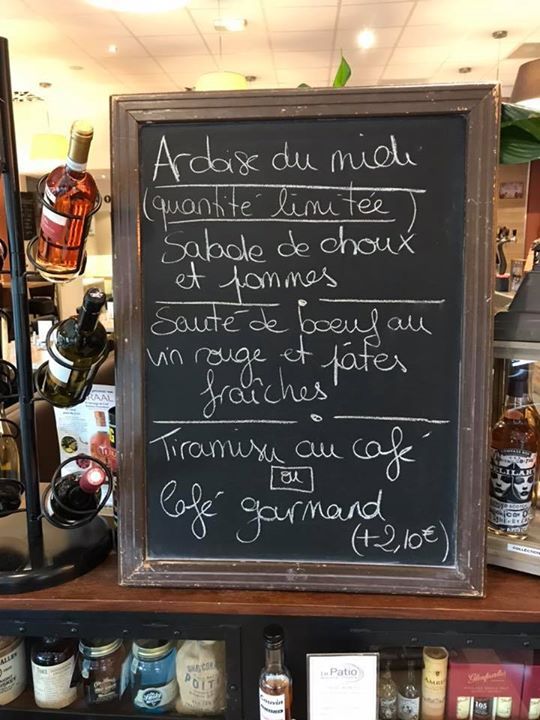 Ardoise du midi
(quantité limitée)
Salade de choux
et pommes
Sauté de boeuf au
vin rouge et pâtes
fraîches
Tiramisu au café
ou
Café gourmand
(+2,10€)
DELILAH'S
COLLECTION
Le Patio
Glenfarclas
105